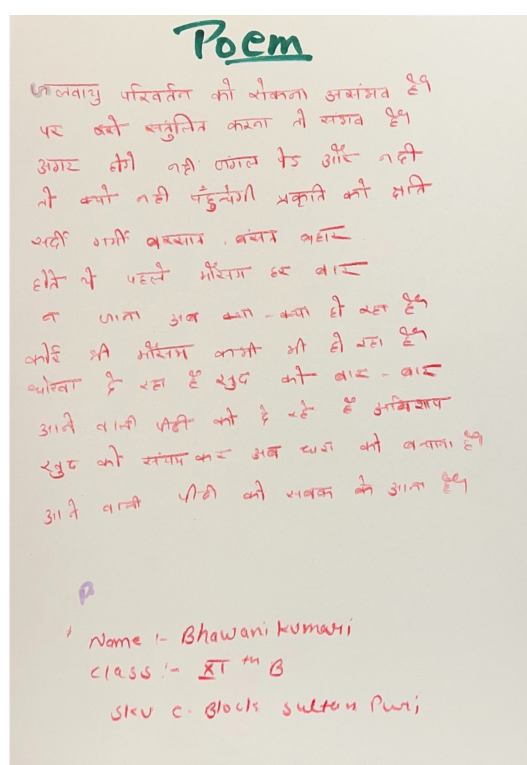 Poem
जलवायु परिवर्तन को रोकना असंभव है।
पर इसे संतुलित करना तो संभव है।
अगर होंगे नही जंगल पेड और नदी
तो क्यो नही पहुँचेगी प्रकृति को क्षति
सर्दी गर्मी बरसात, बंसत बहार
होते थे पहले मौसम हर बार
न जाना अब क्या - क्या हो रहा है।
कोई भी मौसम कभी भी हो रहा है।
धोखा दे रहा है खुद को बार - बार
आने वाली पीढी को दे रहे है अभिशाप
खुद को संयम कर अब धरा को बचाना है।
आने वाली पीढी को सबक के आना है।
Name :- Bhawani kumari
Class :- XI th B
SKV C. Block Sultan Puri